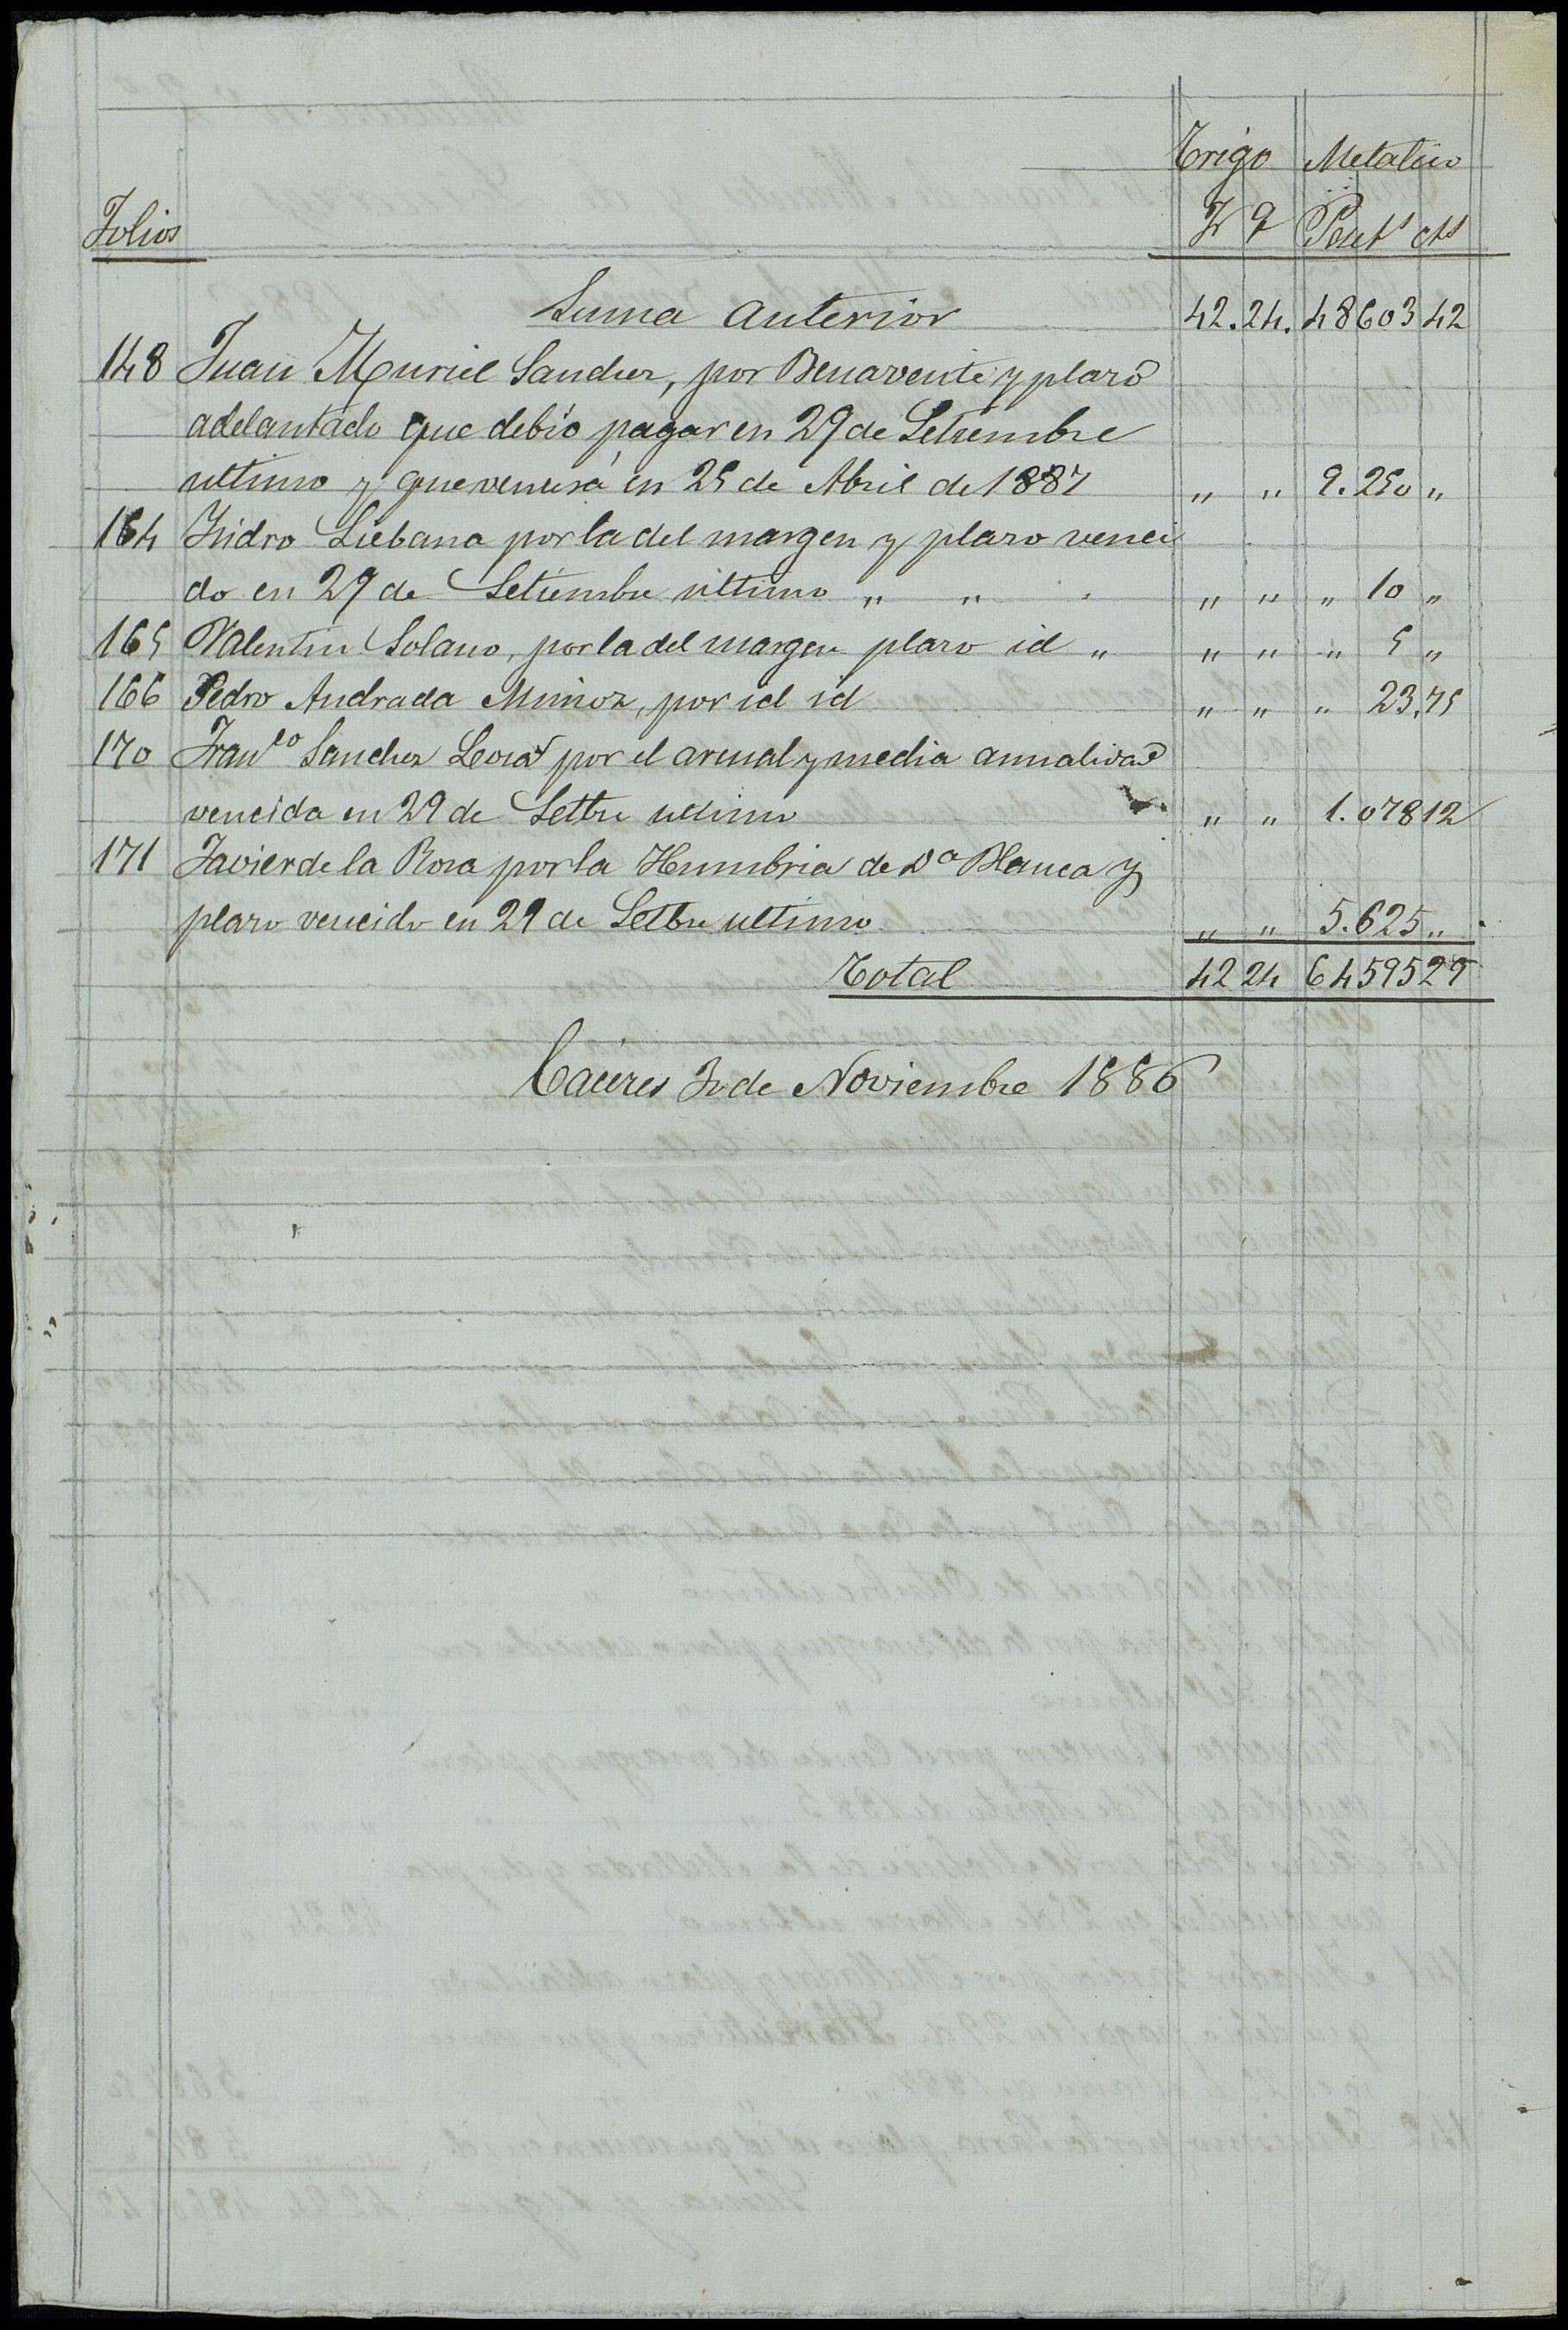 Trigo Metalico
Folios F q Peset.s cts
Suma anterior 42. 24. 48603 42
148 Juan Muriel Sanchez, por Benavente y plazo
adelantado que debió pagar en 29 de Setiembre
ultimo y que vencerá en 25 de Abril de 1887 " " 9.250 "
164 Isidro Liebana por la del margen y plazo venci
do en 29 de Setiembre ultimo " " " " " 10 "
165 Valentin Solano, por la del margen plazo id " " " " 5 "
166 Pedro Andrada Muñoz, por id id " " " 23,75
170 Franco Sanchez Lora por el arenal y media anualidad
vencida en 29 de Settre ultimo " " 1.078 12
171 Javier de la Rosa por la Humbria de Da Blanca y
plazo vencido en 29 de Setbre ultimo " " 5.625 "
Total 42 24 64595 29
Caceres de Noviembre 1886